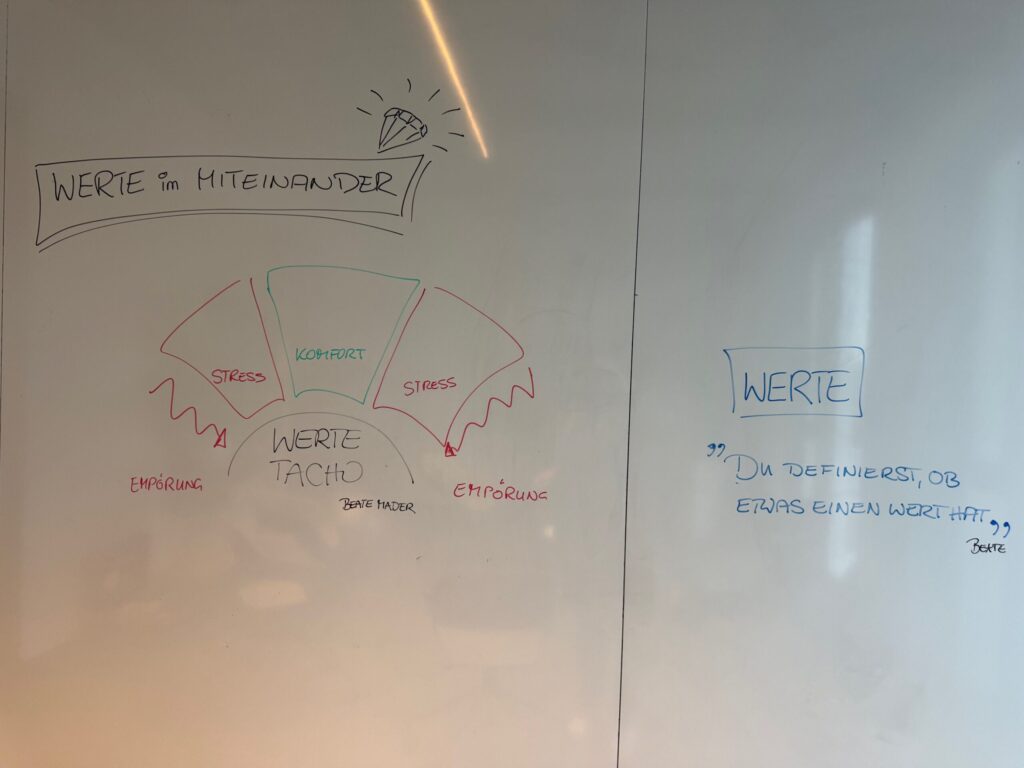 WERTE im MITEINANDER
KOMFORT
STRESS
STRESS
WERTE
TACHO
EMPÖRUNG
EMPÖRUNG
BEATE MADER
WERTE
„DU DEFINIERST, OB
ETWAS EINEN WERT HAT„
BEATE